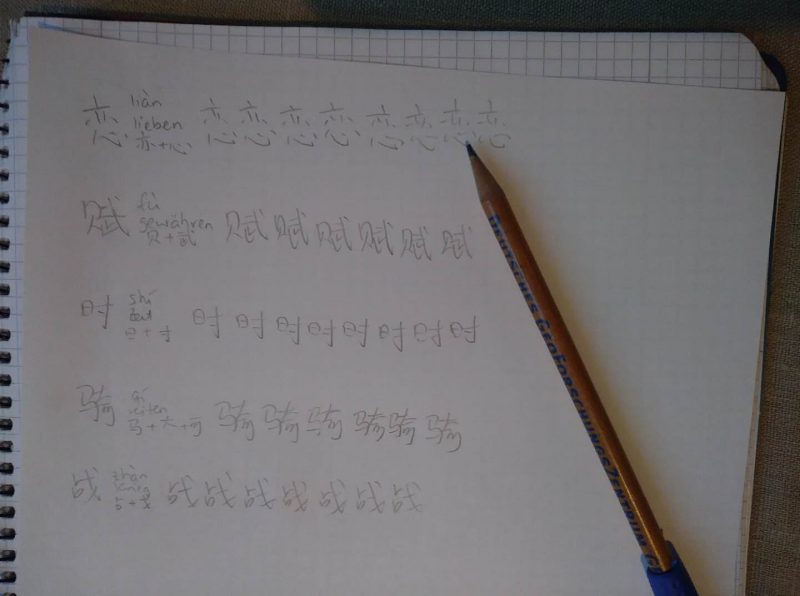 恋 liàn 恋 恋 恋 恋 恋 恋 恋 恋
lieben
亦+心
赋 fù 赋 赋 赋 赋 赋 赋
gewähren
贝+武
时 shí 时 时 时 时 时 时 时 时
Zeit
日+寸
骑 qí 骑 骑 骑 骑 骑 骑
reiten
马+大+可
战 zhàn 战 战 战 战 战 战 战
占+戈
DEUTSCHES GEOFORSCHUNGSZENTRUM